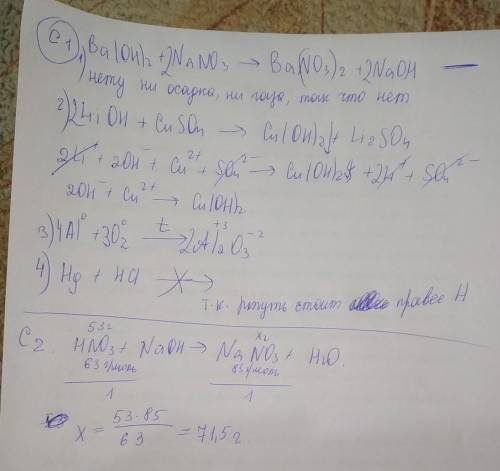 C1
1) Ba(OH)2 + 2NaNO3 → Ba(NO3)2 + 2NaOH —
нету ни осадка, ни газа, так что нет
2) 2LiOH + CuSO4 → Cu(OH)2↓ + Li2SO4
2Li⁺ + 2OH⁻ + Cu²⁺ + SO4²⁻ → Cu(OH)2↓ + 2Li⁺ + SO4²⁻
2OH⁻ + Cu²⁺ → Cu(OH)2
3) 4Al⁰ + 3O2⁰ →t 2Al2⁺³O3⁻²
4) Hg + HCl ↛
т.к. ртуть стоит правее H
C2. 53г хг
HNO3 + NaOH → NaNO3 + H2O.
63 г/моль 85 г/моль
1 1
X = 53·85 / 63 = 71,5 г.